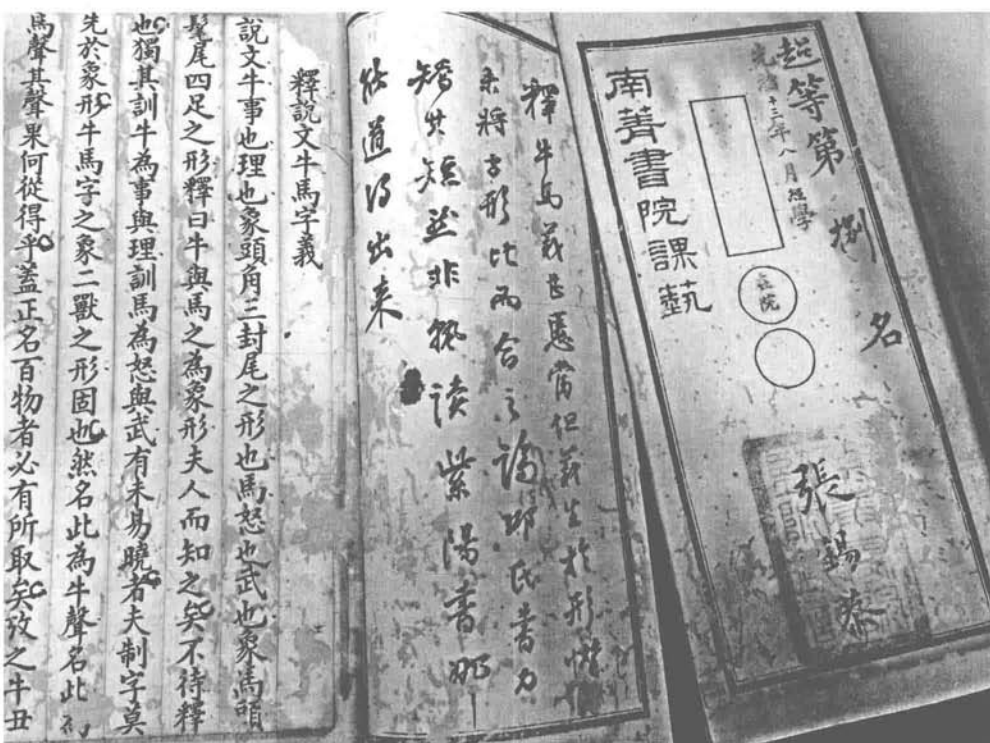 超等第捌名
光緒十三年八月經學
張錫恭
院
南菁書院課藝
釋牛馬義甚愜當但義生於形惜
未將字形比而合之
矯其短並非熟讀紫陽書那
能道得出来
釋說文牛馬字義
說文牛事也理也象頭角三封尾之形也馬怒也武也象馬頭
髦尾四足之形釋曰牛與馬之為象形夫人而知之矣不待釋
也獨其訓牛為事與理訓馬為怒與武有未易曉者夫制字莫
先於象形牛馬字之象二獸之形固也然名此為牛聲名此為
馬聲其聲果何從得乎蓋正名百物者必有所取矣攷之牛丑